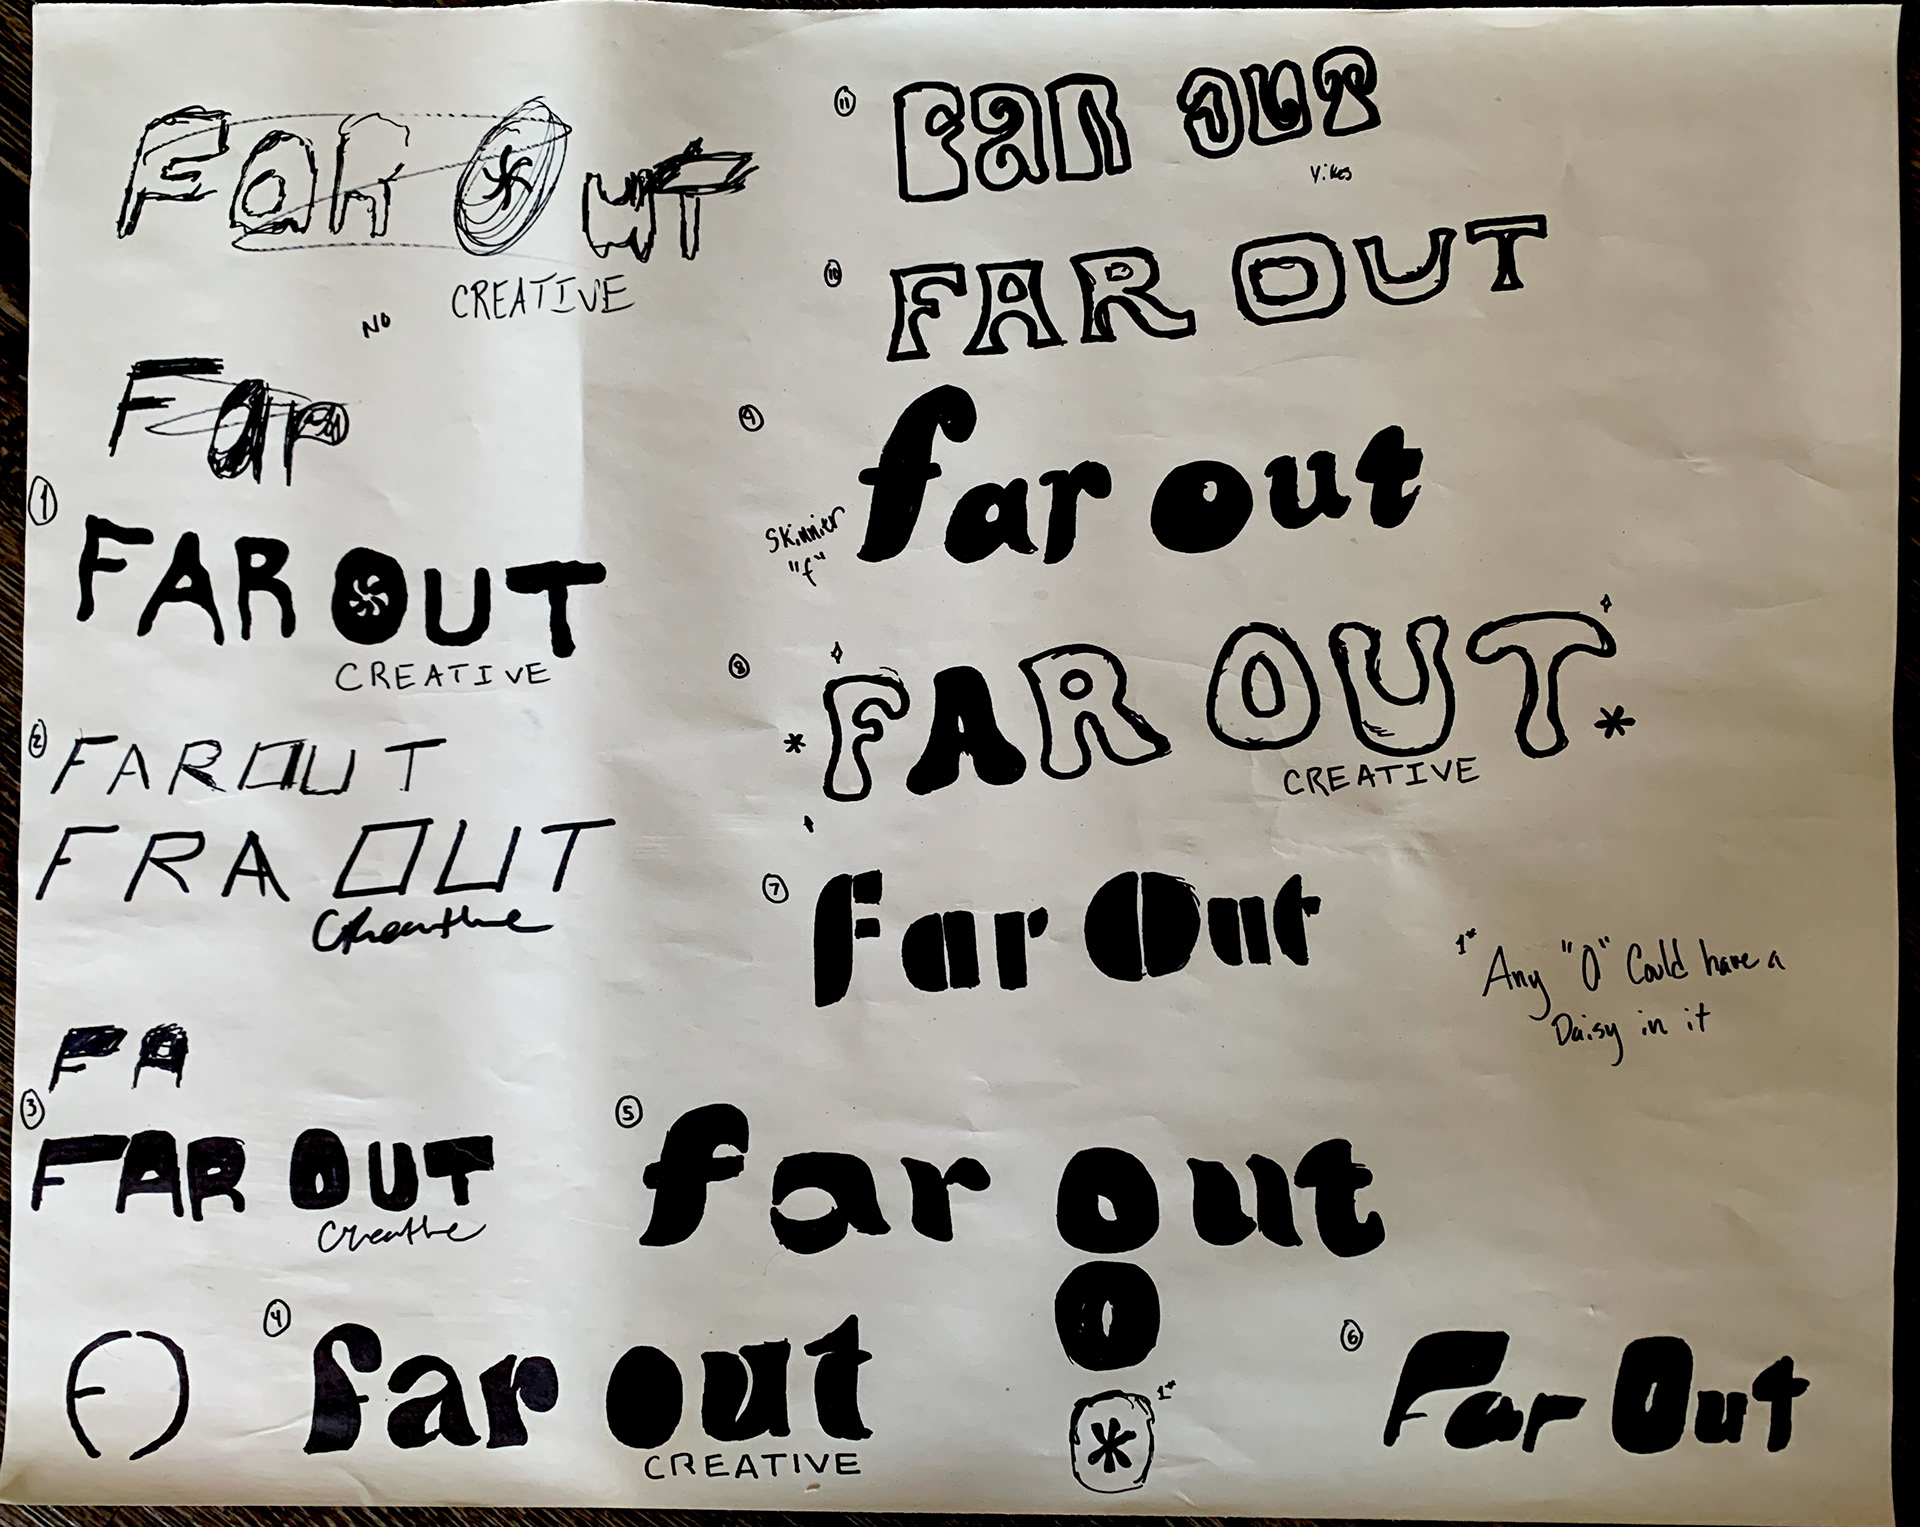 Far Out
CREATIVE
NO
Far
1
FAR OUT
CREATIVE
2
FAROUT
FRA OUT
Creative
FA
3
FAR OUT
Creative
F
4
far out
CREATIVE
11
Far out
Yikes
10
FAR OUT
9
far out
Skinnier
"f"
8
* FAR OUT *
CREATIVE
7
Far Out
1* Any "O" Could have a
Daisy in it
5
far out
O
1*
6
Far Out